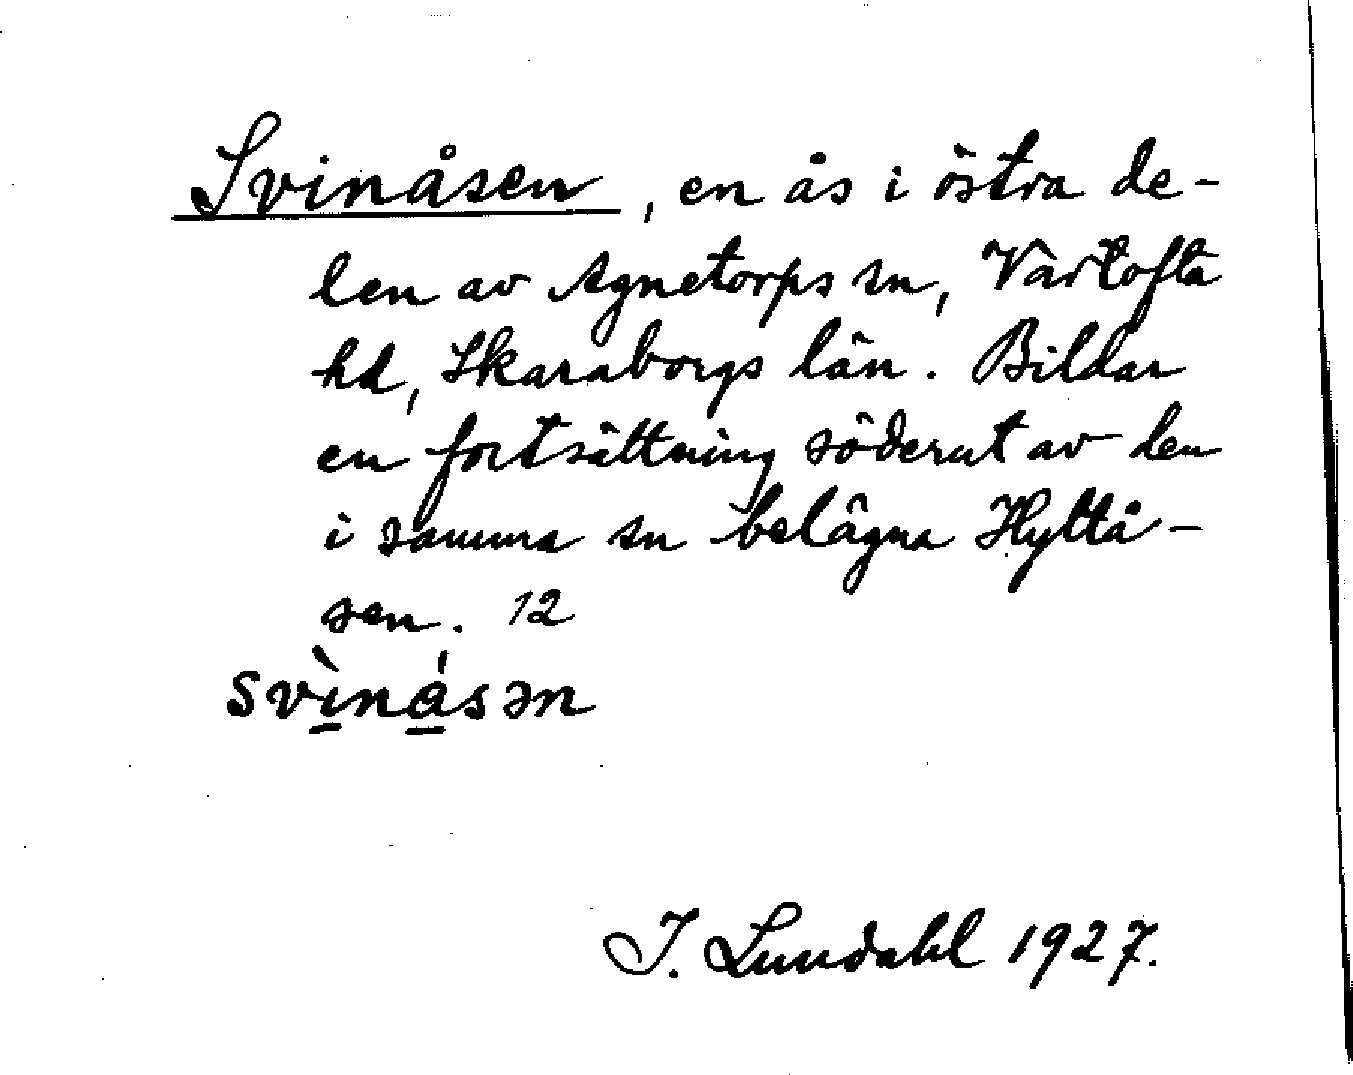 Svinåsen, en ås i östra de-
len av Agnetorps sn, Vartofta
hd, Skaraborgs län. Bildar
en fortsättning söderut av den
i samma sn belägna Hyltå-
sen. 12
svı̲̀ná̲sən
I. Lundahl 1927.